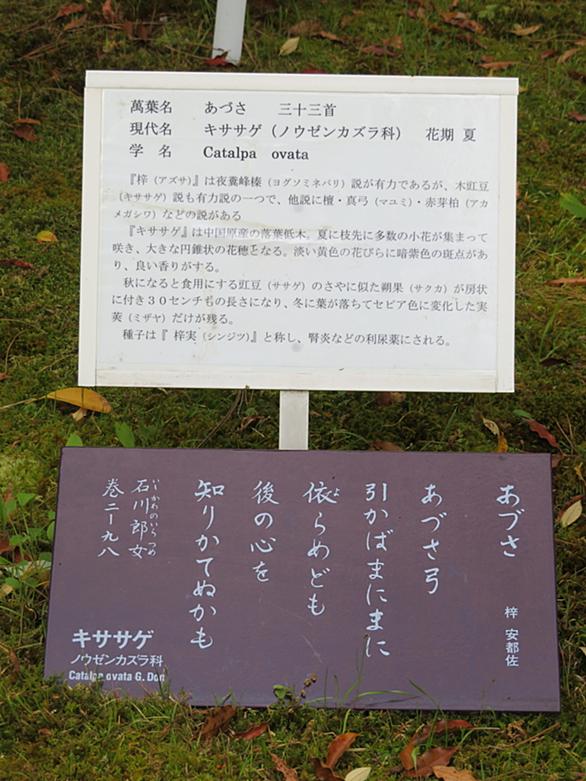 萬葉名　　あづさ　　三十三首
現代名　　キササゲ（ノウゼンカズラ科）　花期 夏
学　名　　Catalpa ovata
『梓（アズサ）』は夜糞峰榛（ヨグソミネバリ）説が有力であるが、木豇豆
（キササゲ）説も有力説の一つで、他説に檀・真弓（マユミ）・赤芽柏（アカ
メガシワ）などの説がある
『キササゲ』は中国原産の落葉低木。夏に枝先に多数の小花が集まって
咲き、大きな円錐状の花穂となる。淡い黄色の花びらに暗紫色の斑点があ
り、良い香りがする。
秋になると食用にする豇豆（ササゲ）のさやに似た朔果（サクカ）が房状
に付き３０センチもの長さになり、冬に葉が落ちてセピア色に変化した実
莢（ミザヤ）だけが残る。
種子は『 梓実（シンジツ）』と称し、腎炎などの利尿薬にされる。
あづさ　梓 安都佐
あづさ弓
引かばまにまに
依らめども
よ
後の心を
知りかてぬかも
石川郎女
いしかわのいらつめ
巻二ー九八
キササゲ
ノウゼンカズラ科
Catalpa ovata G. Don